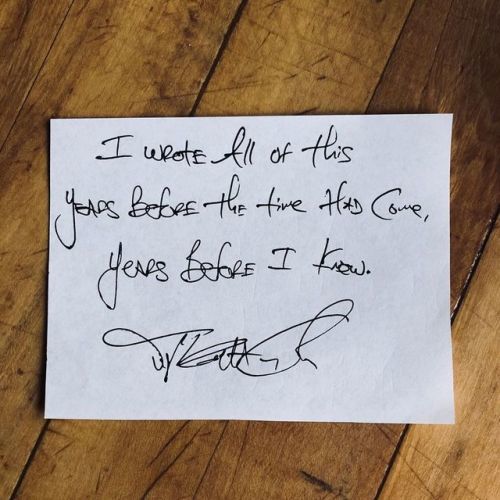 I wrote All of this
years before the time Had Come,
years before I Knew.